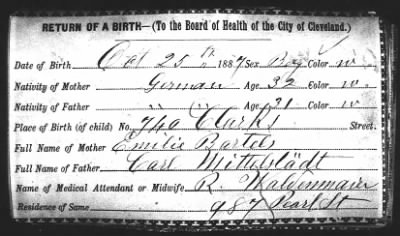 RETURN OF A BIRTH—(To the Board of Health of the City of Cleveland.)
Date of Birth Oct 25th 1887 Sex Boy Color w.
Nativity of Mother German Age 32 Color w.
Nativity of Father " " Age 31 Color w
Place of Birth (of child) No. 740 Clarks Street.
Full Name of Mother Emilie Bartels
Full Name of Father Carl Mittelstädt
Name of Medical Attendant or Midwife R. Waldenmaier
Residence of Same 987 Pearl St